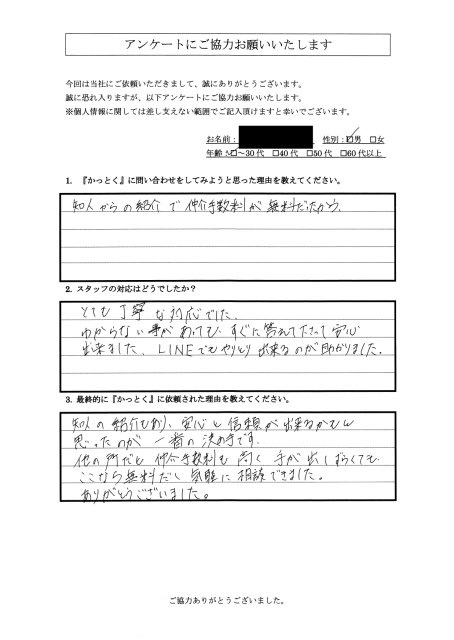 アンケートにご協力お願いいたします
今回は当社にご依頼いただきまして、誠にありがとうございます。
誠に恐れ入りますが、以下アンケートにご協力お願いいたします。
※個人情報に関しては差し支えない範囲でご記入頂けますと幸いでございます。
お名前： 性別：☑男 □女
年齢：☑～30代 □40代 □50代 □60代以上
1. 『かっとく』に問い合わせをしてみようと思った理由を教えてください。
知人からの紹介で仲介手数料が無料だったから。
2. スタッフの対応はどうでしたか？
とても丁寧な対応でした。
わからない事があっても、すぐに答えて下さって安心
出来ました。LINEでもやりとり出来るのが助かりました。
3. 最終的に『かっとく』に依頼された理由を教えてください。
知人の紹介もあり、安心と信頼が出来るかもと
思ったのが一番の決め手です。
他の所だと仲介手数料も高く手が出しづらくても
ここなら無料だし気軽に相談できました。
ありがとうございました。
ご協力ありがとうございました。